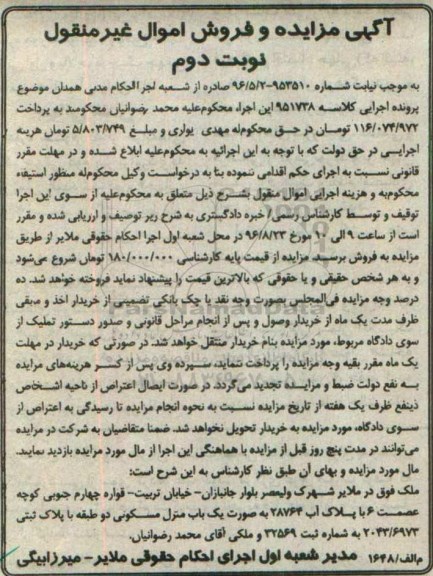 آگهی مزایده و فروش اموال غیرمنقول
نوبت دوم
به موجب نیابت شماره ۹۵۳۵۱۰-۹۶/۵/۲ صادره از شعبه اجرا احکام مدنی همدان موضوع
پرونده اجرایی کلاسه ۹۵۱۷۳۸ این اجراء محکوم‌علیه محمد رضوانیان محکومند به پرداخت
۱۱۶/۰۷۴/۹۷۲ تومان در حق محکوم‌له مهدی یواری و مبلغ ۵/۸۰۳/۷۴۹ تومان هزینه
اجرایی در حق دولت که با توجه به این اجرائیه به محکوم‌علیه ابلاغ شده و در مهلت مقرر
قانونی نسبت به اجرای حکم اقدامی ننموده بنا به درخواست وکیل محکوم‌له منظور استیفاء
محکوم‌به و هزینه اجرایی اموال منقول بشرح ذیل متعلق به محکوم‌علیه از سوی این اجرا
توقیف و توسط کارشناس رسمی/ خبره دادگستری به شرح زیر توصیف و ارزیابی شده و مقرر
است از ساعت ۹ الی ۱۰ مورخ ۹۶/۸/۲۳ در محل شعبه اول اجرا احکام حقوقی ملایر از طریق
مزایده به فروش برسید. مزایده از قیمت پایه کارشناسی ۱۸۰/۰۰۰/۰۰۰ تومان شروع می‌شود
و به هر شخص حقیقی و یا حقوقی که بالاترین قیمت را پیشنهاد نماید فروخته خواهد شد. ده
درصد وجه مزایده فی‌المجلس بصورت وجه نقد یا چک بانکی تضمینی از خریدار اخذ و مبقی
ظرف مدت یک ماه از خریدار وصول و پس از انجام مراحل قانونی و صدور دستور تملیک از
سوی دادگاه مربوط، مورد مزایده بنام خریدار منتقل خواهد شد. در صورتی که خریدار در مهلت
یک ماه مقرر بقیه وجه مزایده را پرداخت ننماید، سپرده وی پس از کسر هزینه‌های مزایده
به نفع دولت ضبط و مزایده تجدید می‌گردد. در صورت ایصال اعتراض از ناحیه اشخاص
ذینفع ظرف یک هفته از تاریخ مزایده نسبت به نحوه انجام مزایده تا رسیدگی به اعتراض از
سوی دادگاه، مورد مزایده به خریدار تحویل نخواهد شد. ضمنا متقاضیان به شرکت در مزایده
می‌توانند در مدت پنج روز قبل از مزایده با هماهنگی این اجرا از مال مورد مزایده بازدید نمایند.
مال مورد مزایده و بهای آن طبق نظر کارشناس به این شرح است:
ملک فوق در ملایر شهرک ولیعصر بلوار جانبازان- خیابان تربیت- قواره چهارم جنوبی کوچه
عصمت ۶ با پلاک آب ۲۸۷۶۴ به صورت یک باب منزل مسکونی دو طبقه با پلاک ثبتی
۲۰۴۳/۶۹۷۳ به شماره ثبت ۳۲۵۶۹ و ملکی آقای محمد رضوانیان.
م‌الف/۱۶۴۸ مدیر شعبه اول اجرای احکام حقوقی ملایر- میرزابیگی